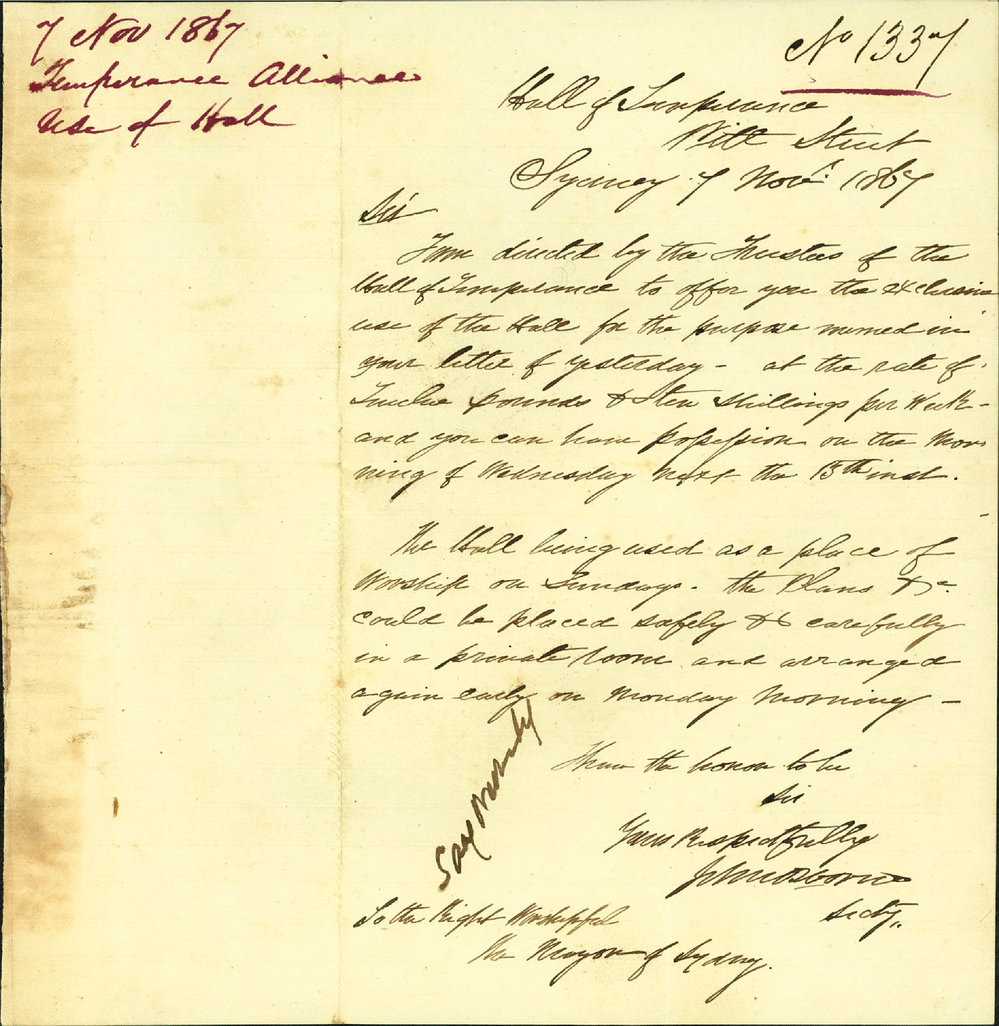 7 Nov 1867
Temperance Alliance
Use of Hall
No 1337
Hall of Temperance
Pitt Street
Sydney 7 Novr. 1867
Sir
I am directed by the Trustees of the
Hall of Temperance to offer you the exclusive
use of the Hall for the purpose named in
your letter of yesterday - at the rate of
Twelve pounds & Ten shillings per Week -
and you can have possession on the Mor
ning of Wednesday next the 13th inst.
The Hall being used as a place of
Worship on Sundays. the Plans &c.
could be placed safely & carefully
in a private room and arranged
again early on Monday Morning -
I have the honor to be
Sir
Yours Respectfully
John Osborne
Secty.
To the Right Worshipful
The Mayor of Sydney.
Say